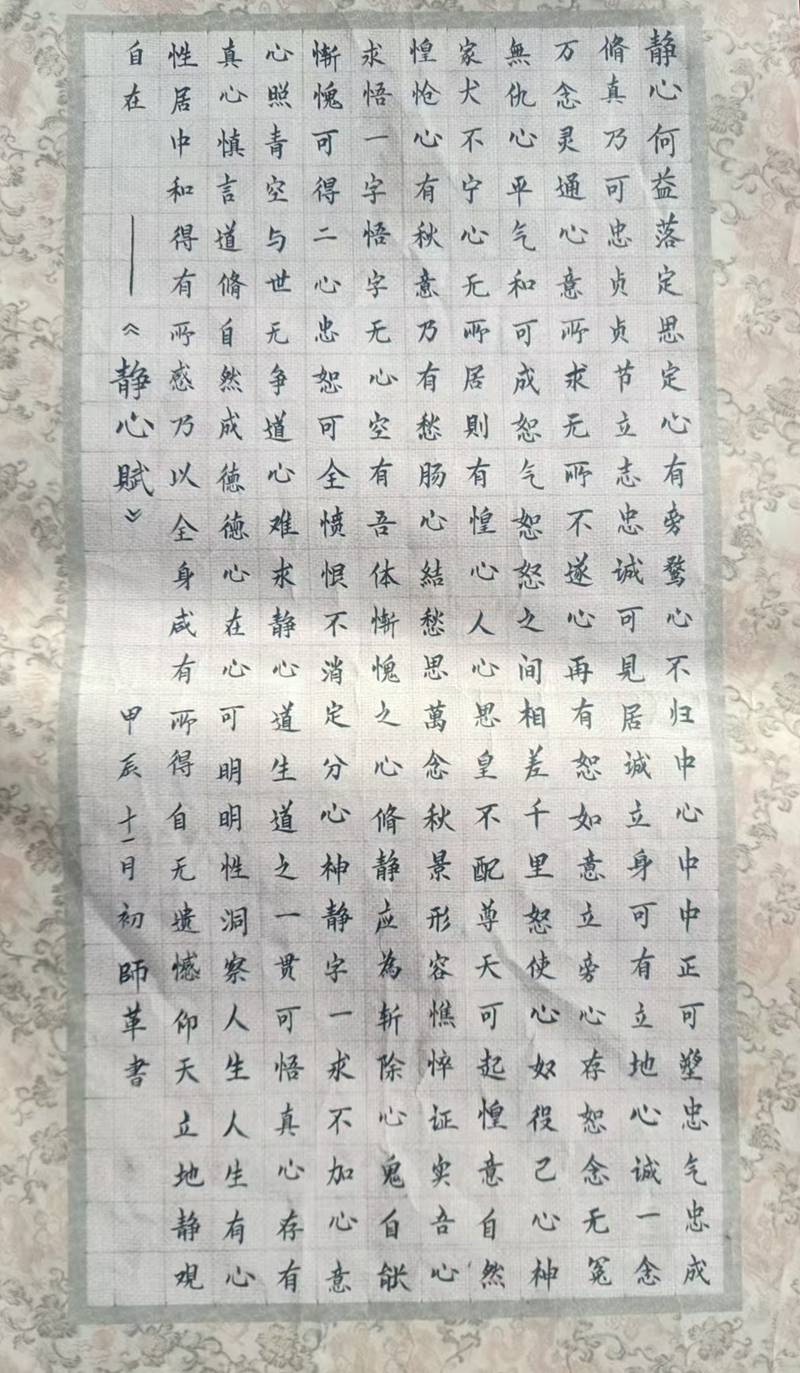 静心何益落定思定心有旁骛心不归中心中中正可塑忠气忠成
脩真乃可忠贞贞节立志忠诚可見居诚立身可有立地心诚一念
万念灵通心意所求无所不遂心再有恕如意立旁心存恕念无冤
無仇心平气和可成恕气恕怒之间相差千里怒使心奴役己心神
家犬不宁心无所居則有惶心人心思皇不配尊天可起惶意自然
惶怆心有秋意乃有愁肠心結愁思萬念秋景形容憔悴证实吾心
求悟一字悟字无心空有吾体惭愧之心脩静应為斩除心鬼自能
惭愧可得二心忠恕可全愤恨不消定分心神静字一求不加心意
心照青空与世无争道心难求静心道生道之一贯可悟真心存有
真心慎言道脩自然成德德心在心可明明性洞察人生人生有心
性居中和得有所感乃以全身咸有所得自无遗憾仰天立地静观
自在 ——《静心賦》 甲辰十一月初師革書